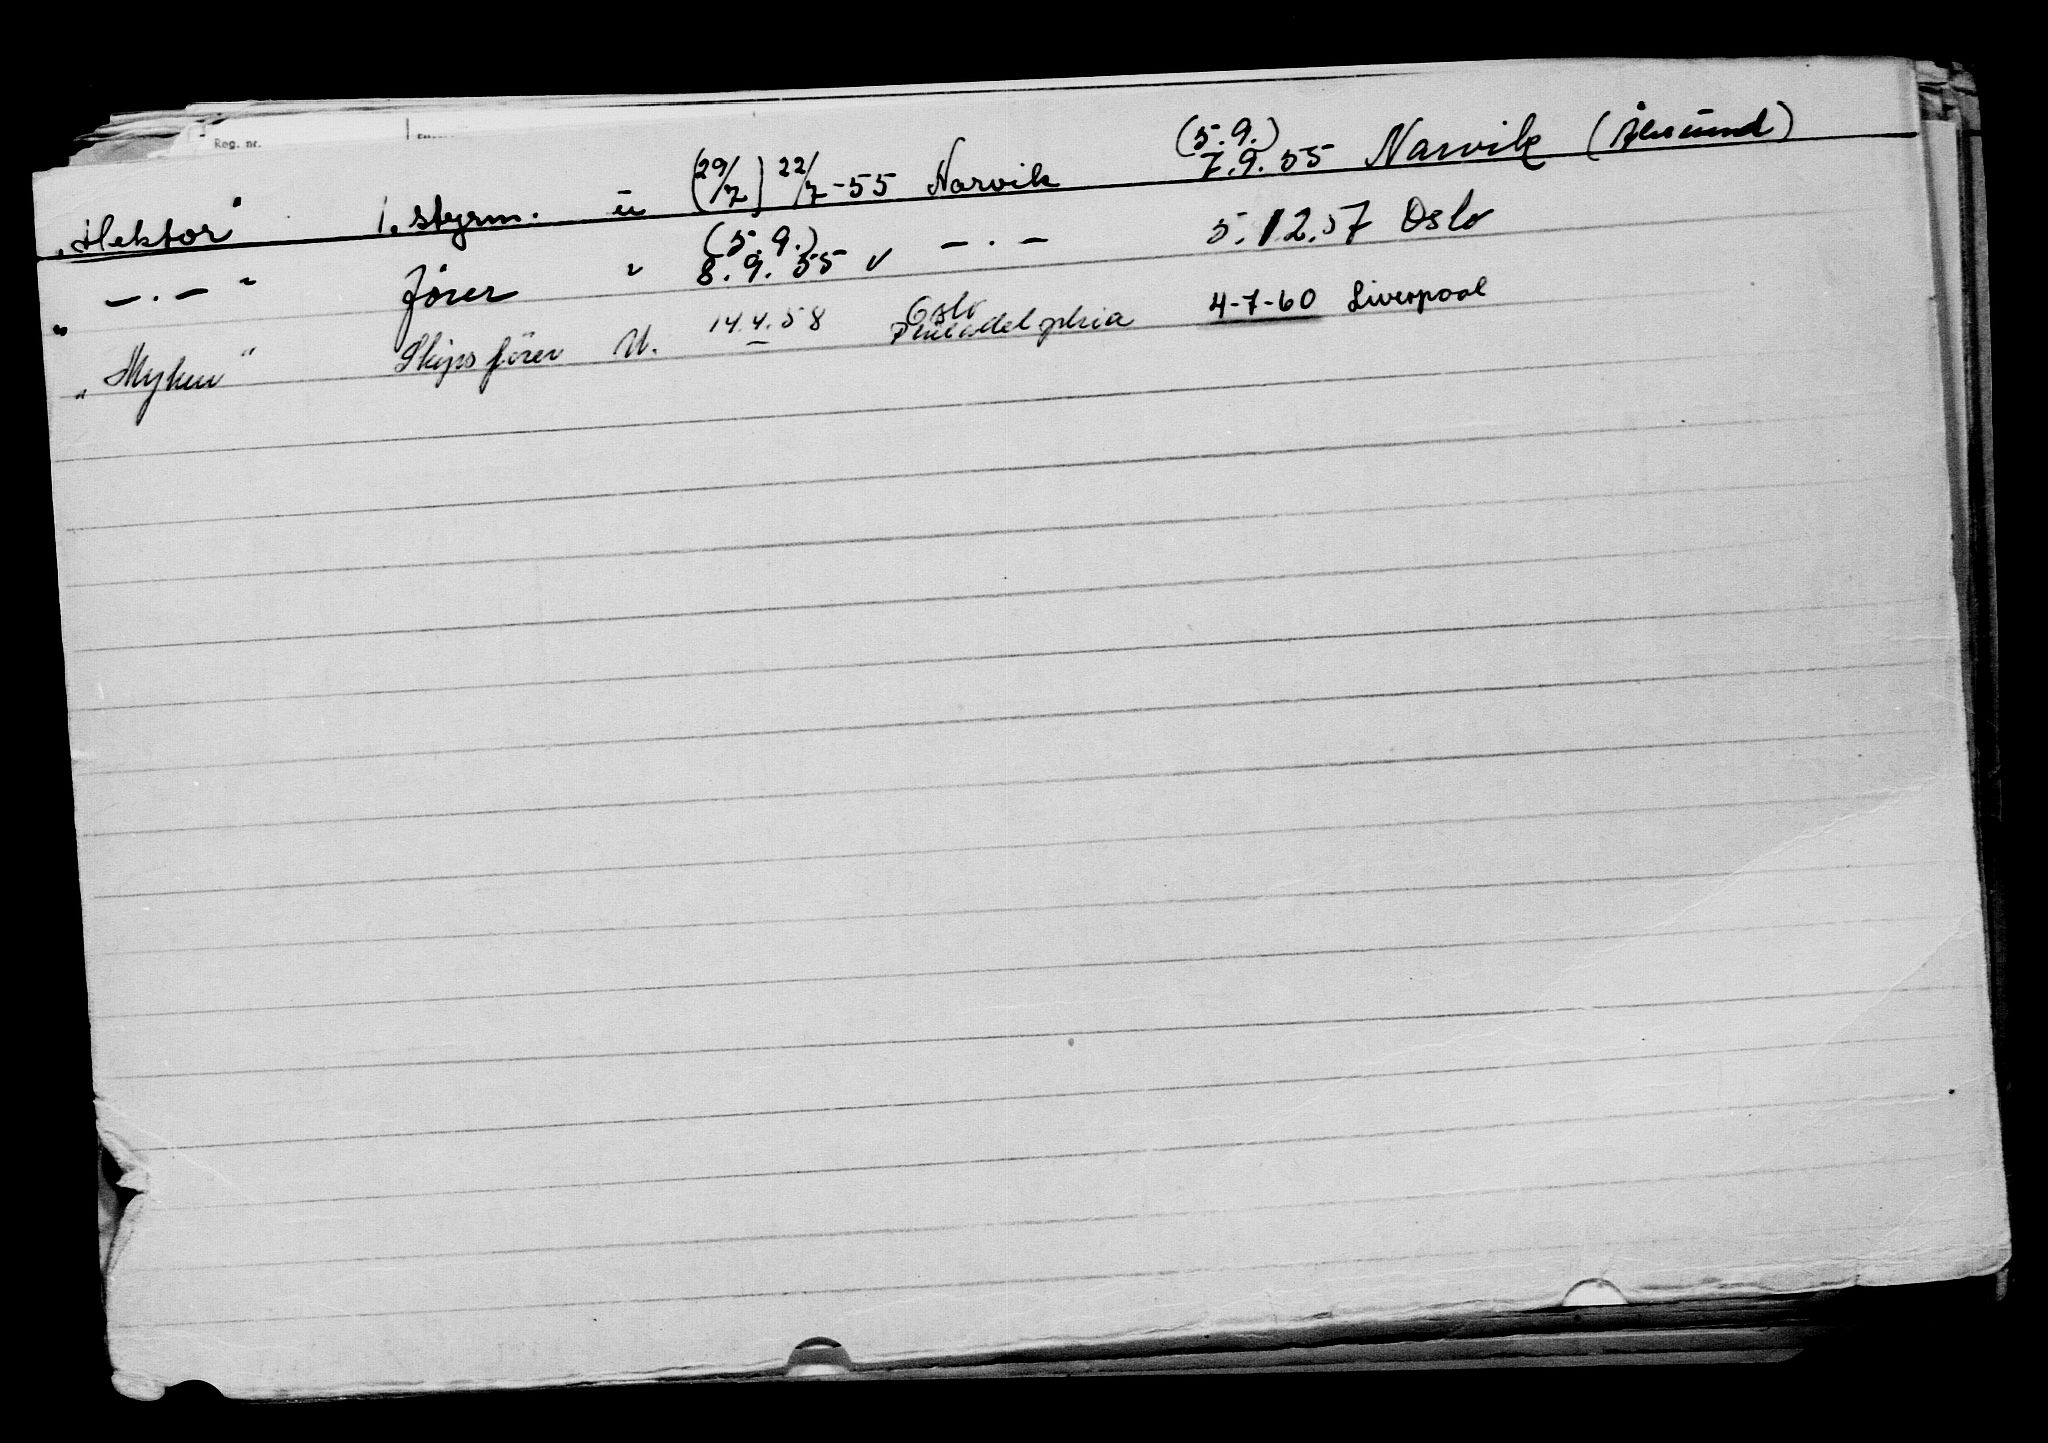 Reg. nr.
„Hektor" 1. styrm. u (29/7) 22/7-55 Narvik (5.9.) 7.9.55 Narvik (Ålesund)
„ —.— " fører " (5.9.) 8.9.55 v —.— 5.12.57 Oslo
„Myken" Skipsfører U. 14.4.58 Oslo Philadelphia 4-7-60 Liverpool